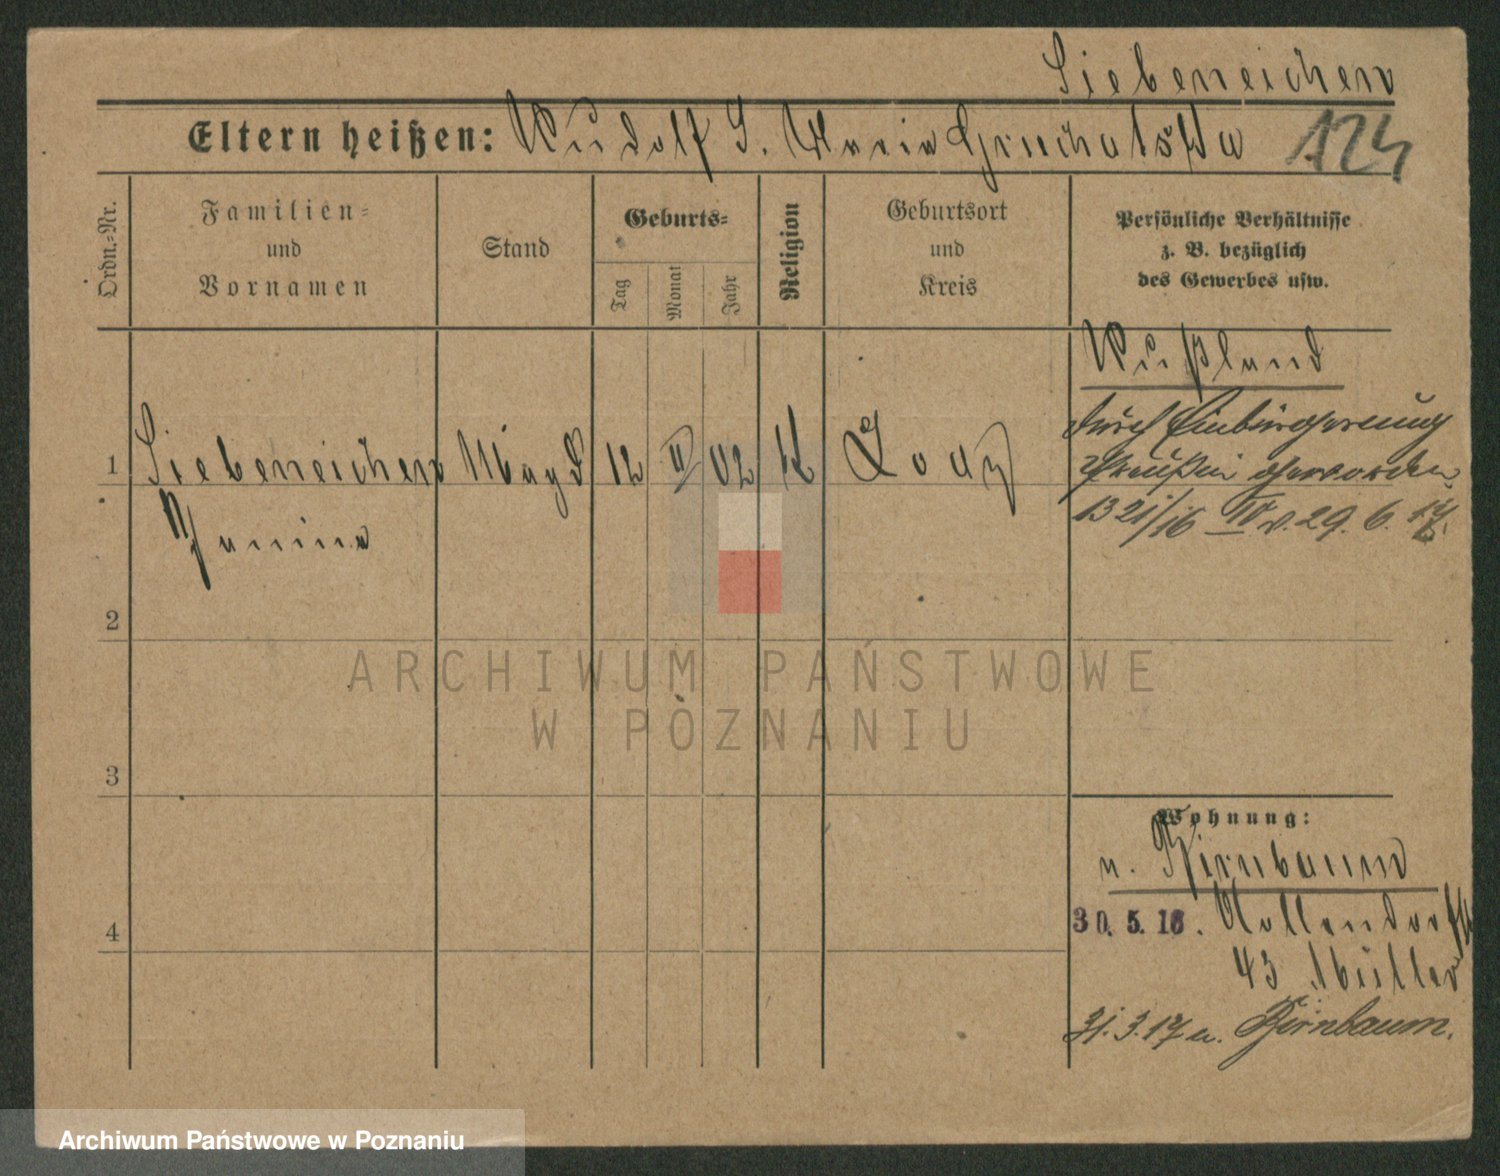 Siebeneichen
Eltern heißen: Rudolf S. Maria Gruchalska 124
Ordn.-Nr.
Familien-
und
Vornamen
Stand
Geburts-
Tag
Monat
Jahr
Religion
Geburtsort
und
Kreis
Persönliche Verhältnisse
z. B. bezüglich
des Gewerbes usw.
Rußland
durch Einbürgerung
Preußin geworden
1321/16 IV v. 29. 6. 17.
1 Siebeneichen Magd 12 II 02 k Lodz
Janina
2
3
4
Wohnung:
n. Birnbaum
30. 5. 16. Nollendorfstr
43 Müller
31. 3. 17 n. Birnbaum.
ARCHIWUM PAŃSTWOWE
W POZNANIU
Archiwum Państwowe w Poznaniu